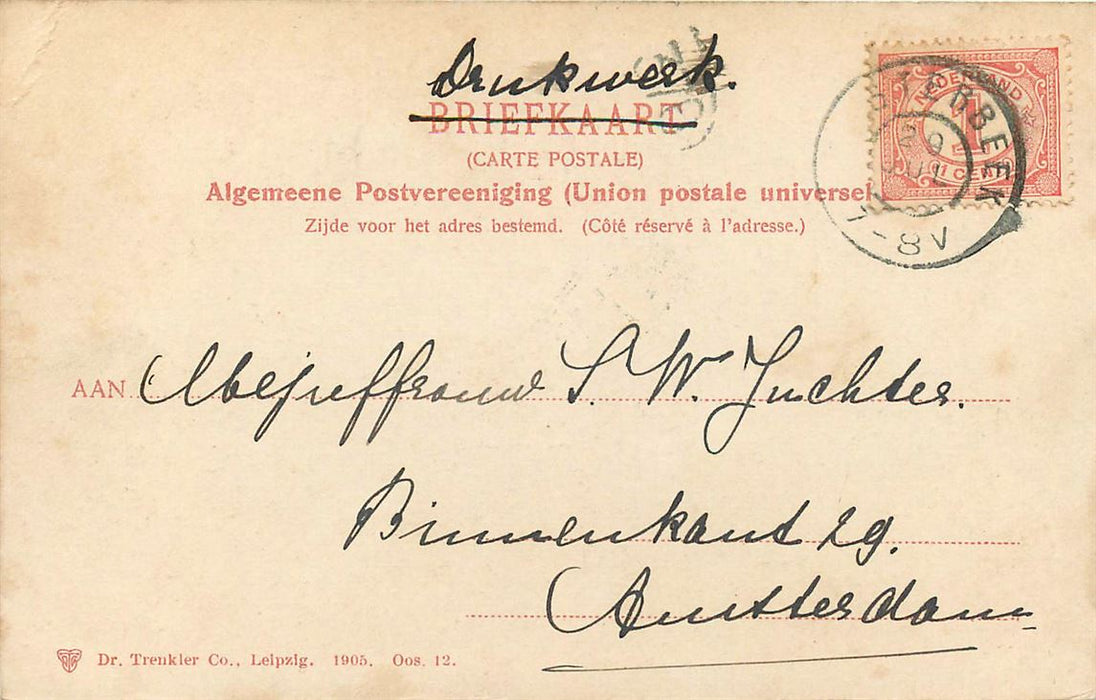 Drukwerk.
BRIEFKAART
(CARTE POSTALE)
Algemeene Postvereeniging (Union postale universel
Zijde voor het adres bestemd. (Côté réservé à l'adresse.)
NEDERLAND
1
1 CENT
7-8V
AAN Mejuffrouw S. W. Juchter.
Binnenkant 29.
Amsterdam
Dr. Trenkler Co., Leipzig. 1905. Oos. 12.